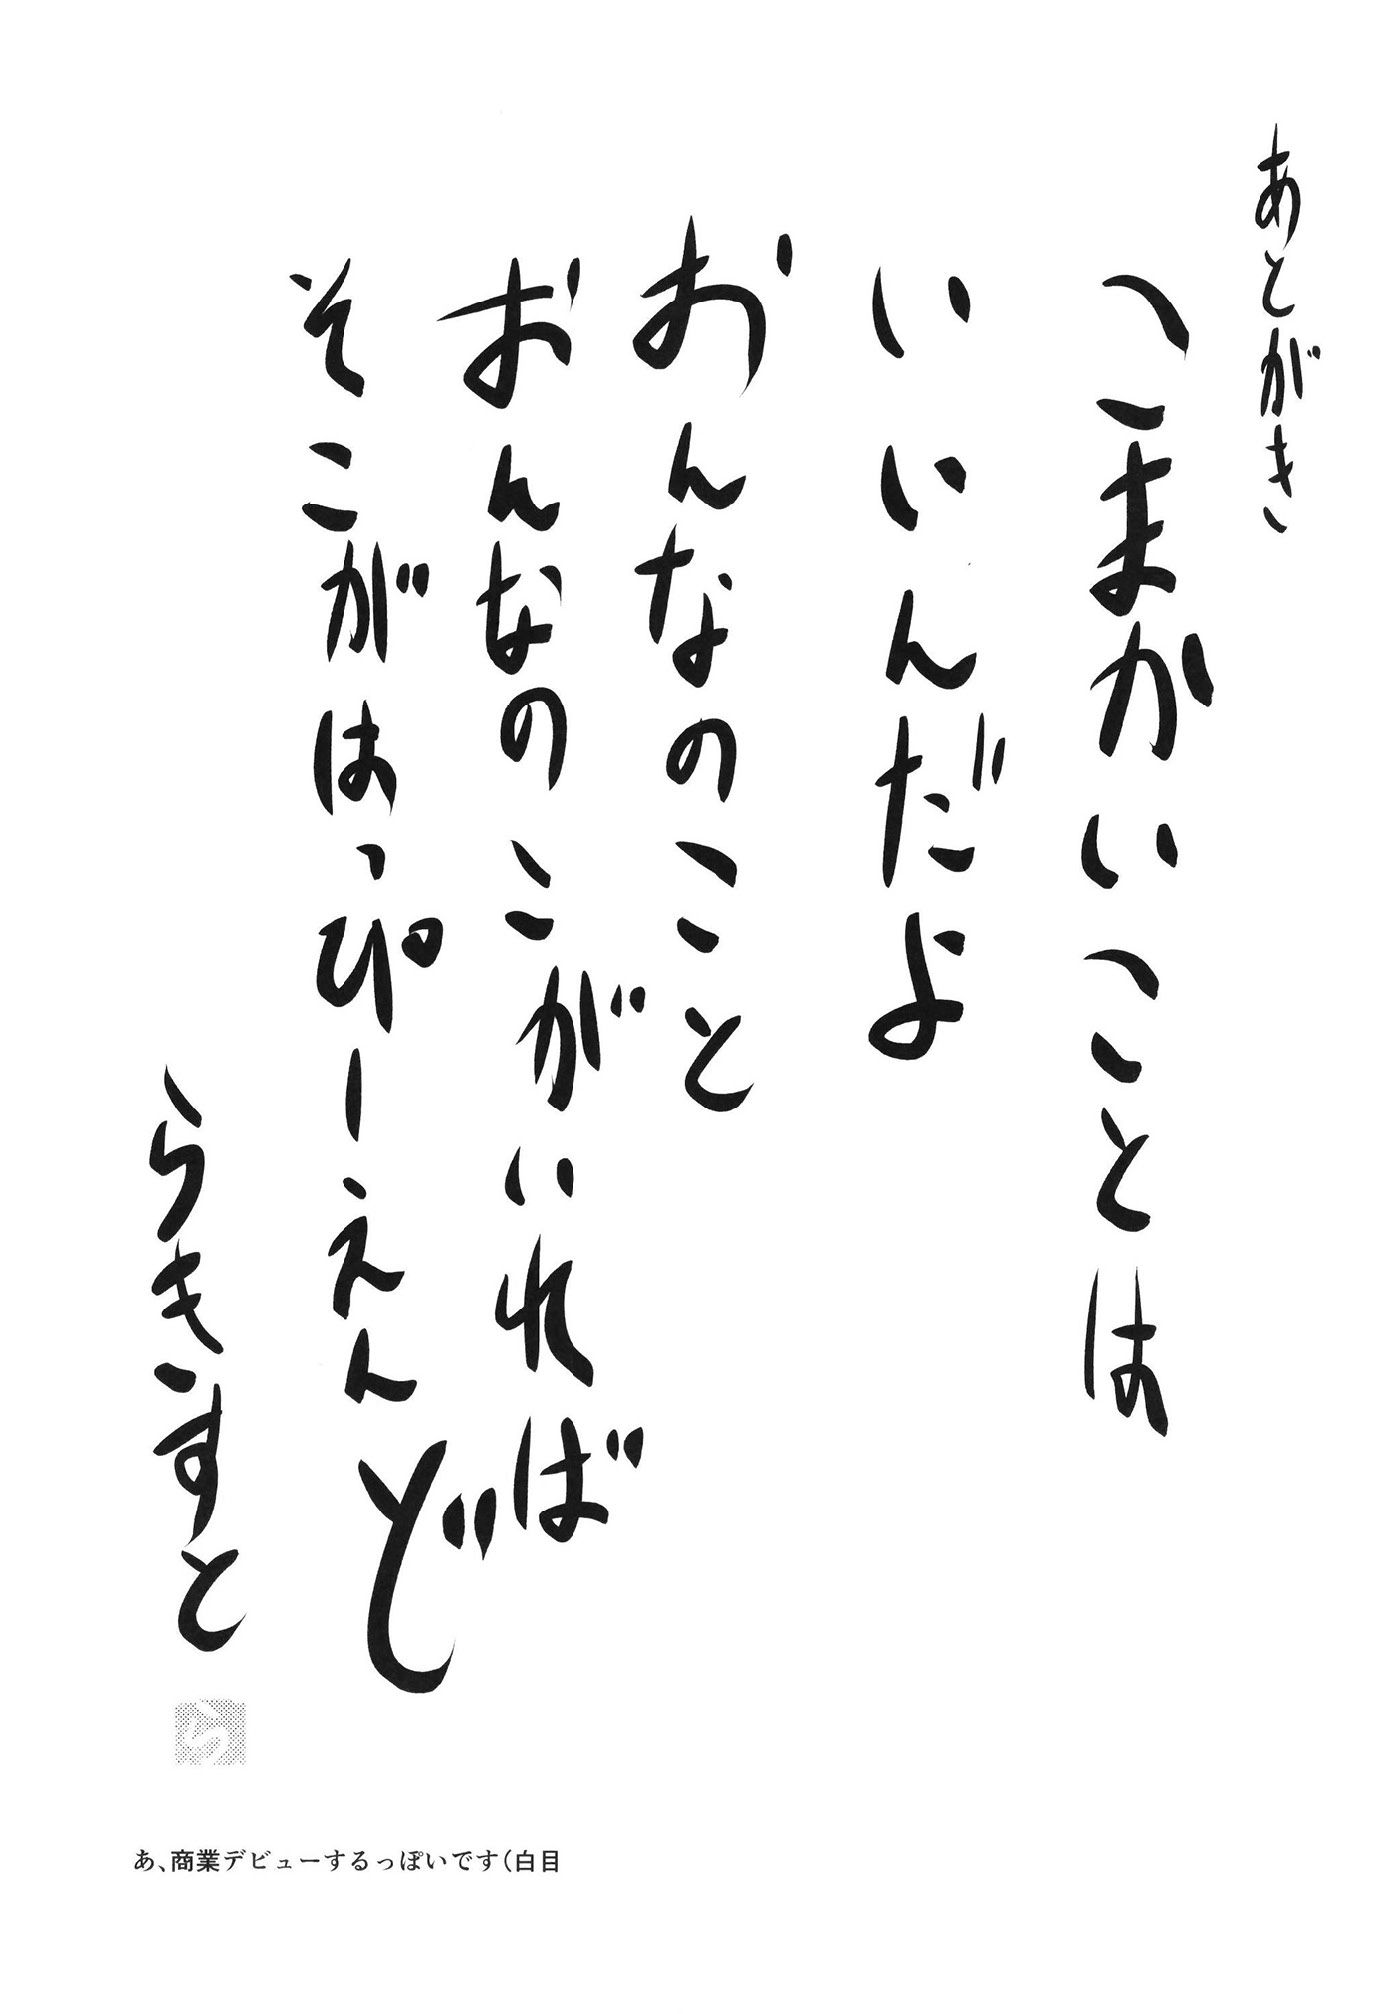 あとがき
こまかいことは
いいんだよ
おんなのこと
おんなのこがいれば
そこがはっぴーえんど
らきすと
ら
あ、商業デビューするっぽいです(白目